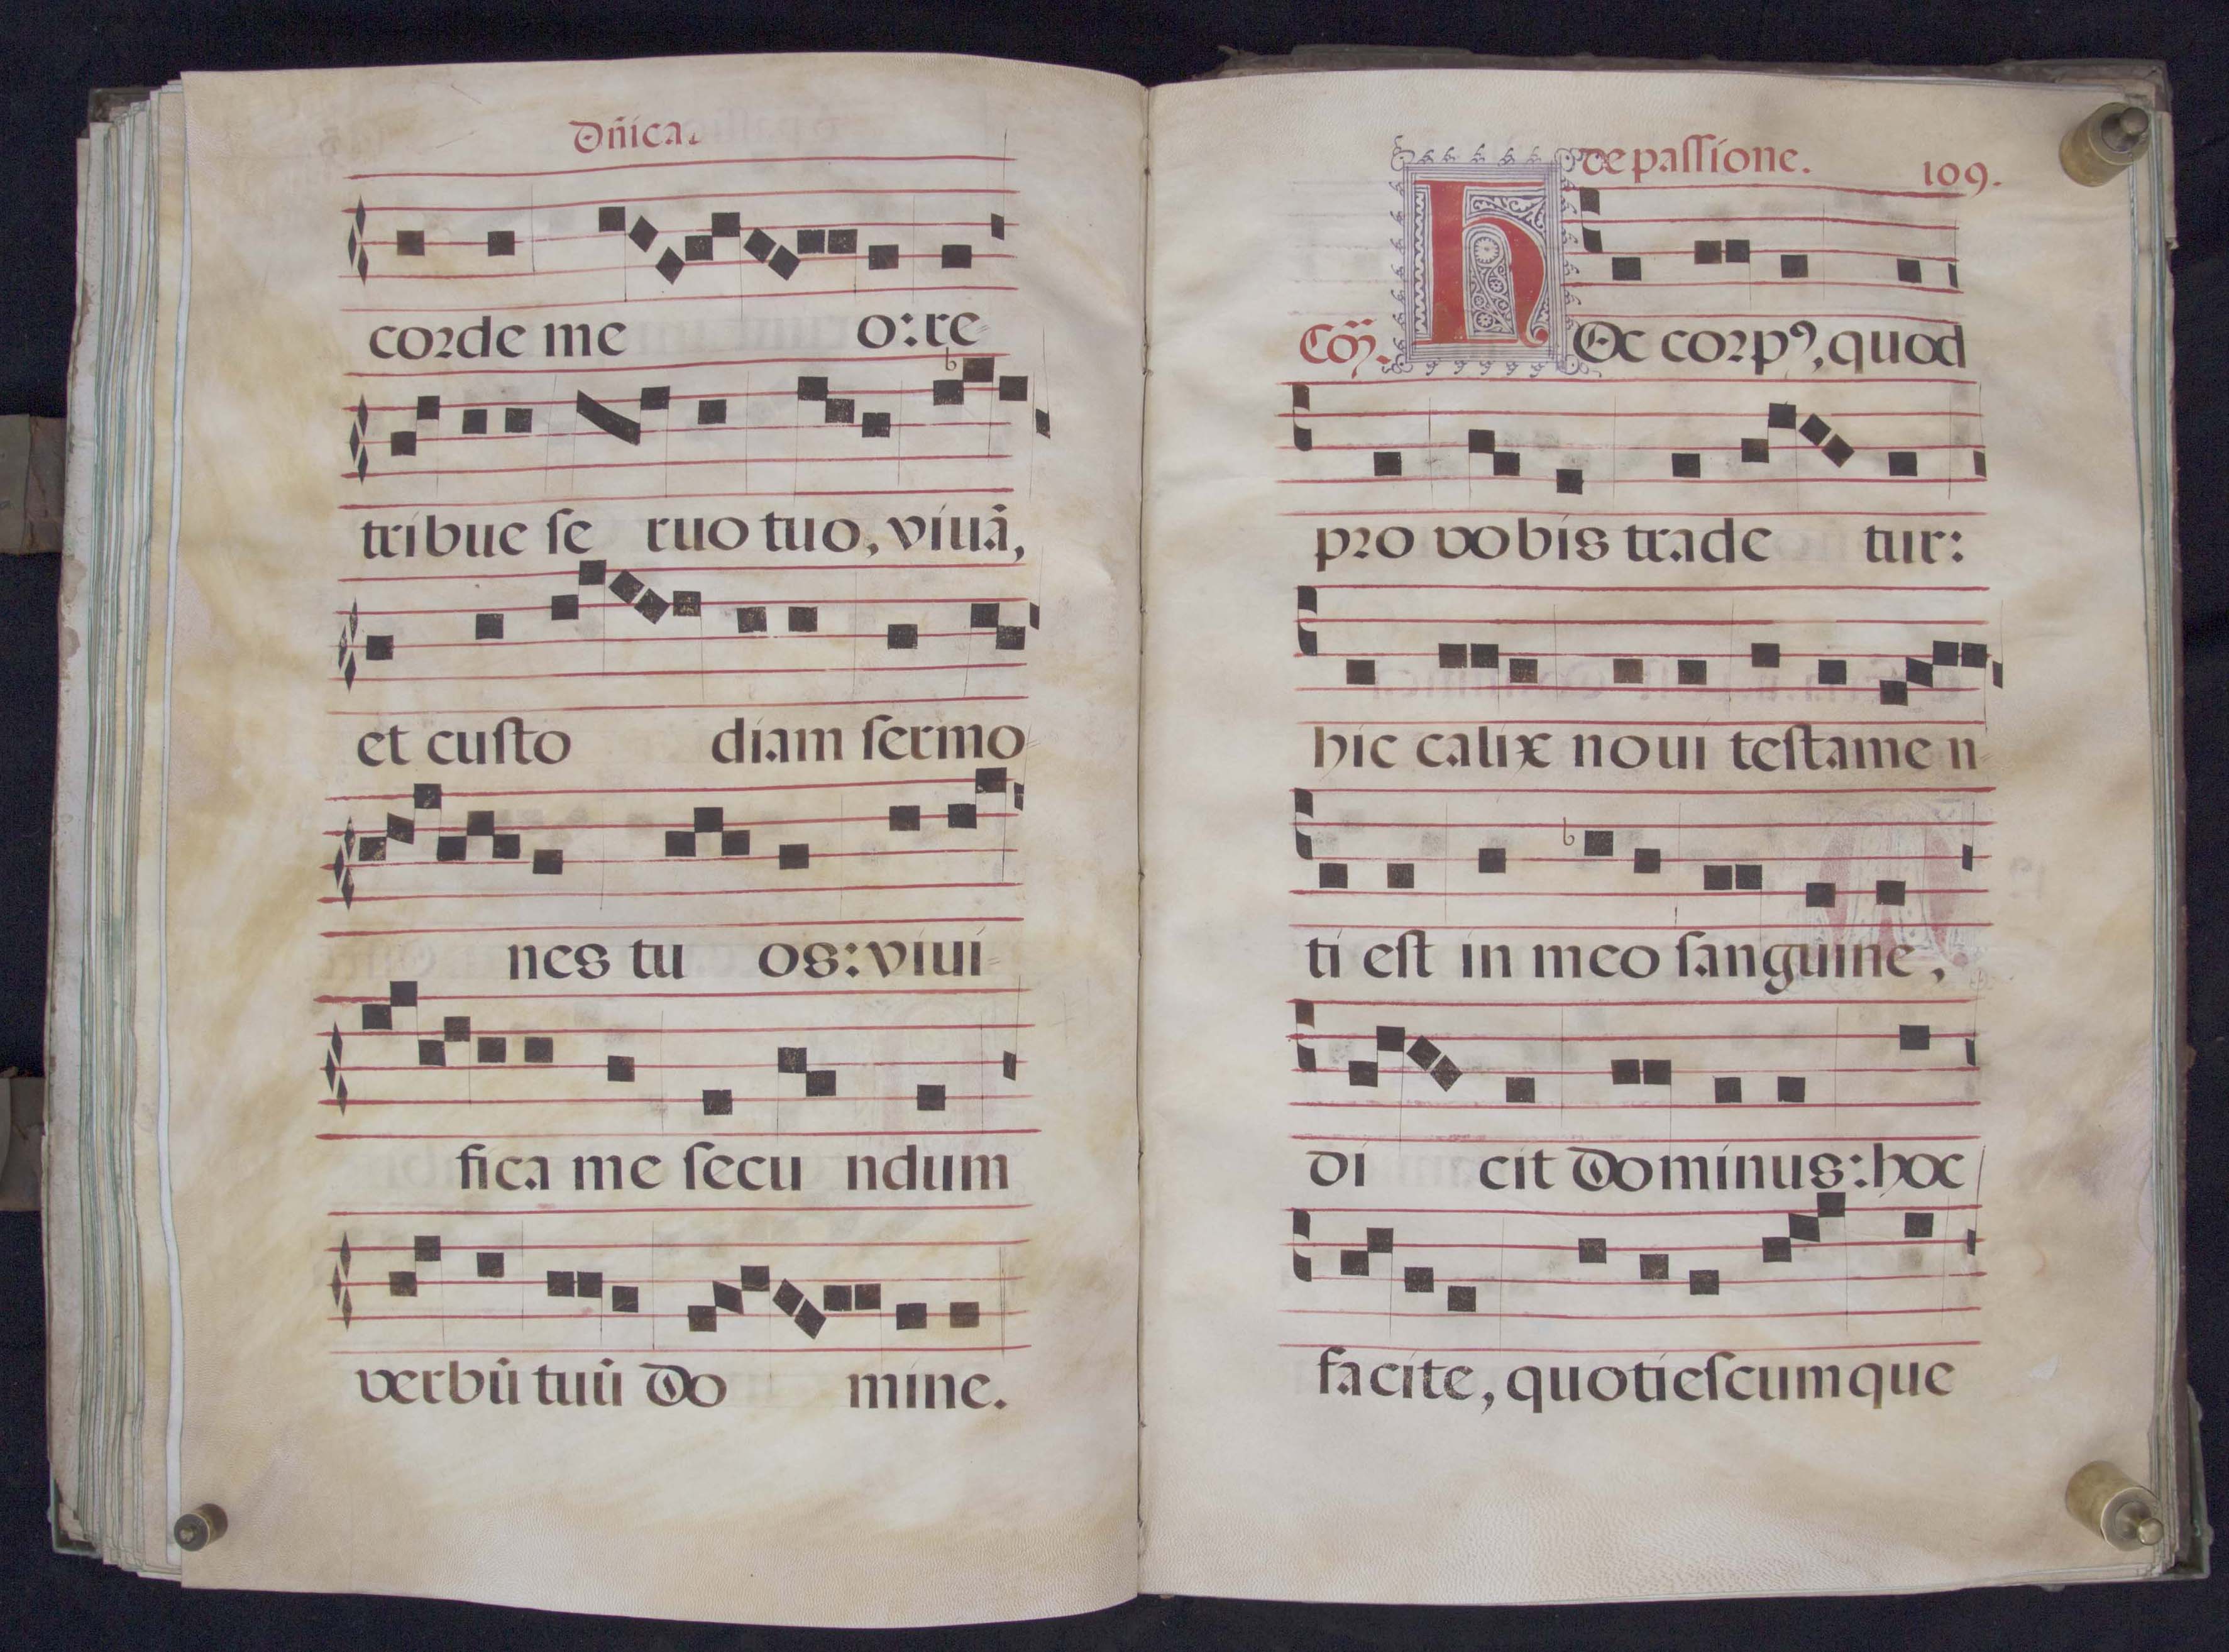 Dñica.
corde me o: re-
tribue ſe ruo tuo, viuā,
et cuſto diam ſermo-
nes tu os: viui-
fica me ſecu ndum
verbū tuū Do mine.
de paſſione. 109.
Cō. HOc corpꝰ, quod
pro vobis trade tur:
hic calix noui teſtame n-
ti eſt in meo ſanguine,
di cit Dominus: hoc
facite, quotieſcumque